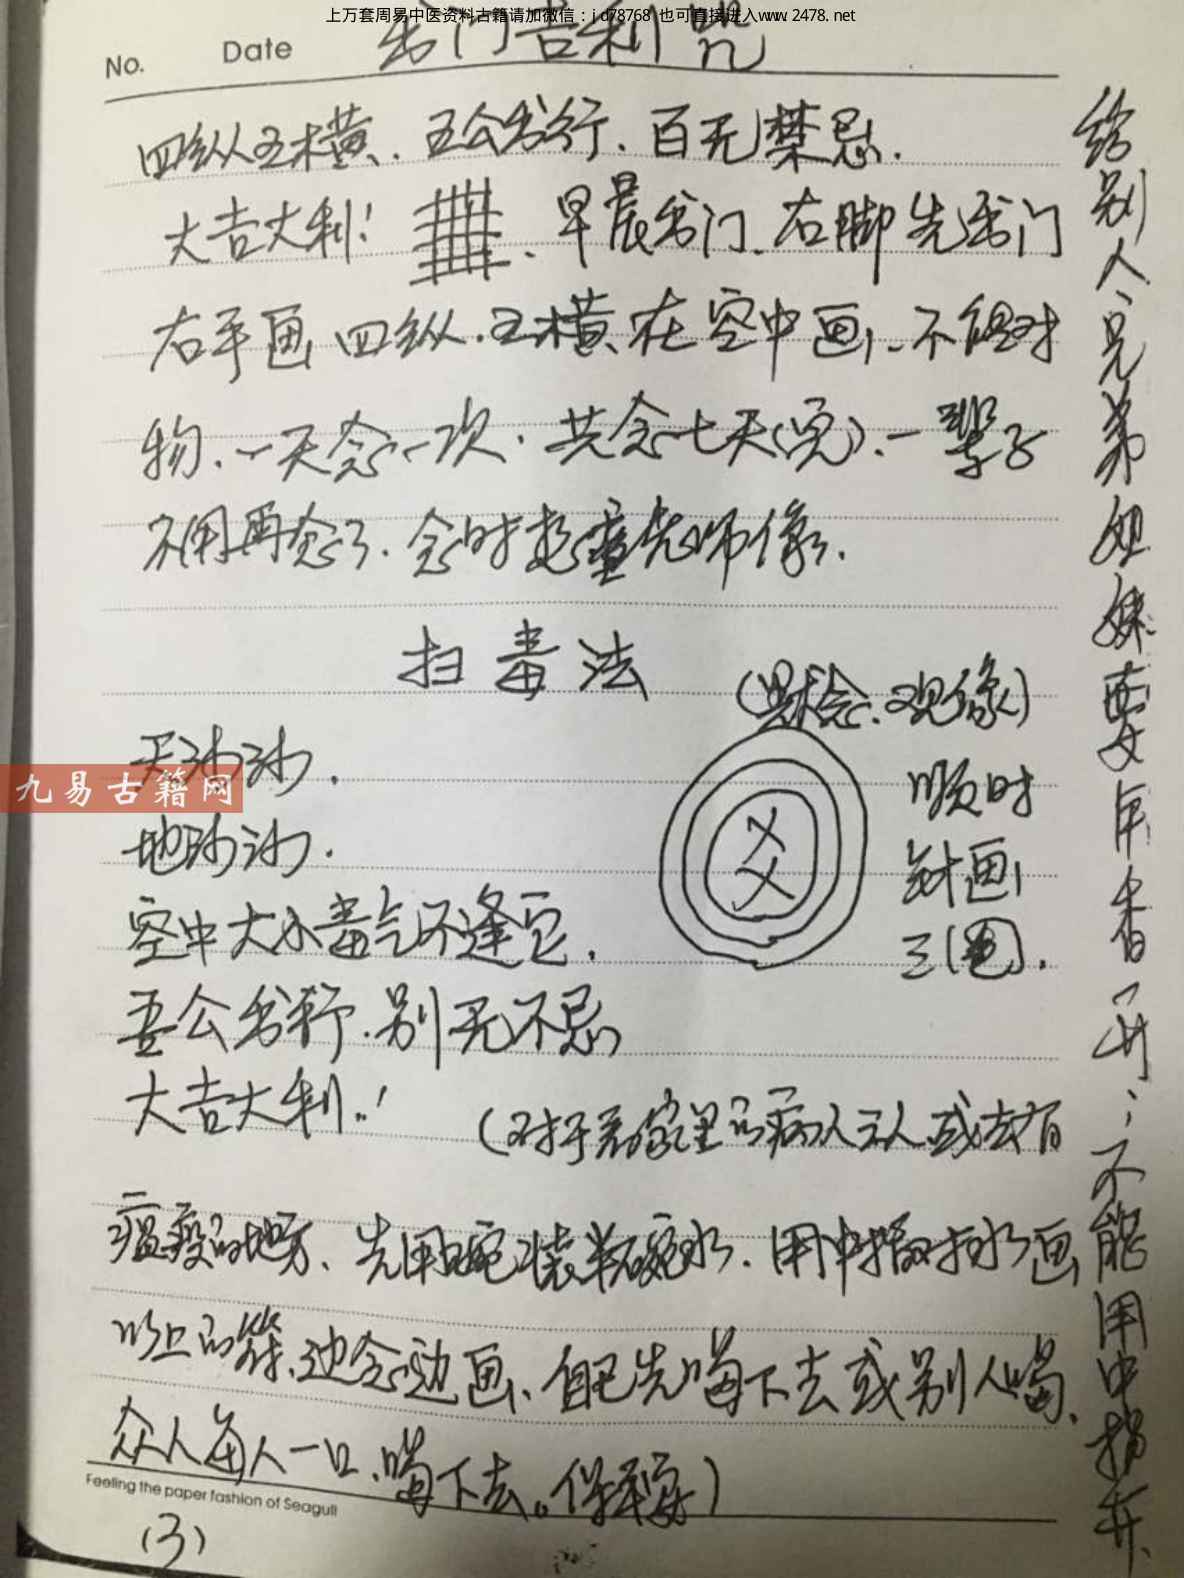 上万套周易中医资料古籍请加微信：id78768 也可直接进入www.2478.net
No. Date 出门吉利咒
四纵五横、五公出行、百无禁忌.
大吉大利！ 早晨出门、右脚先出门
右手画四纵.五横、在空中画、不能对
物、一天念一次.共念七天(完)、一辈子
不用再念了.念时想童先师像.
扫毒法
(默念、观像)
天
九易古籍网
地
空中大小毒气不逢它.
吾公出行.别无不忌
大吉大利!
父
顺时
针画
三(圈).
(对于看家里的病人亡人或去有
瘟疫的地方、先用碗装半碗水.用中指对水画
以上的符、边念边画、自己先喝下去或别人喝、
众人每人一口、喝下去。保平安)
给别人、兄弟姐妹要用香开；不能用中指开、
Feeling the paper fashion of Seagull
(3)